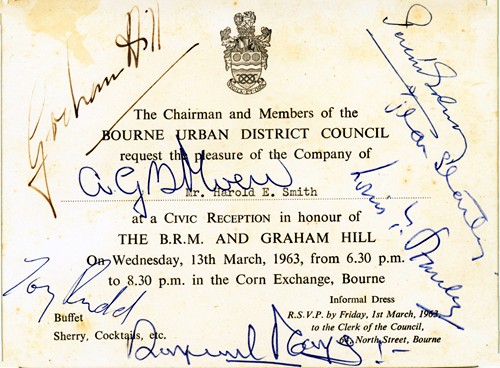 Graham Hill
The Chairman and Members of the
BOURNE URBAN DISTRICT COUNCIL
request the pleasure of the Company of
Mr. Harold E. Smith
at a CIVIC RECEPTION in honour of
THE B.R.M. AND GRAHAM HILL
On Wednesday, 13th March, 1963, from 6.30 p.m.
to 8.30 p.m. in the Corn Exchange, Bourne
Tony Rudd
Buffet
Sherry, Cocktails, etc.
Informal Dress
R.S.V.P. by Friday, 1st March, 1963,
to the Clerk of the Council,
North Street, Bourne
Raymond Mays
Jean Stanley
Louis Stanley